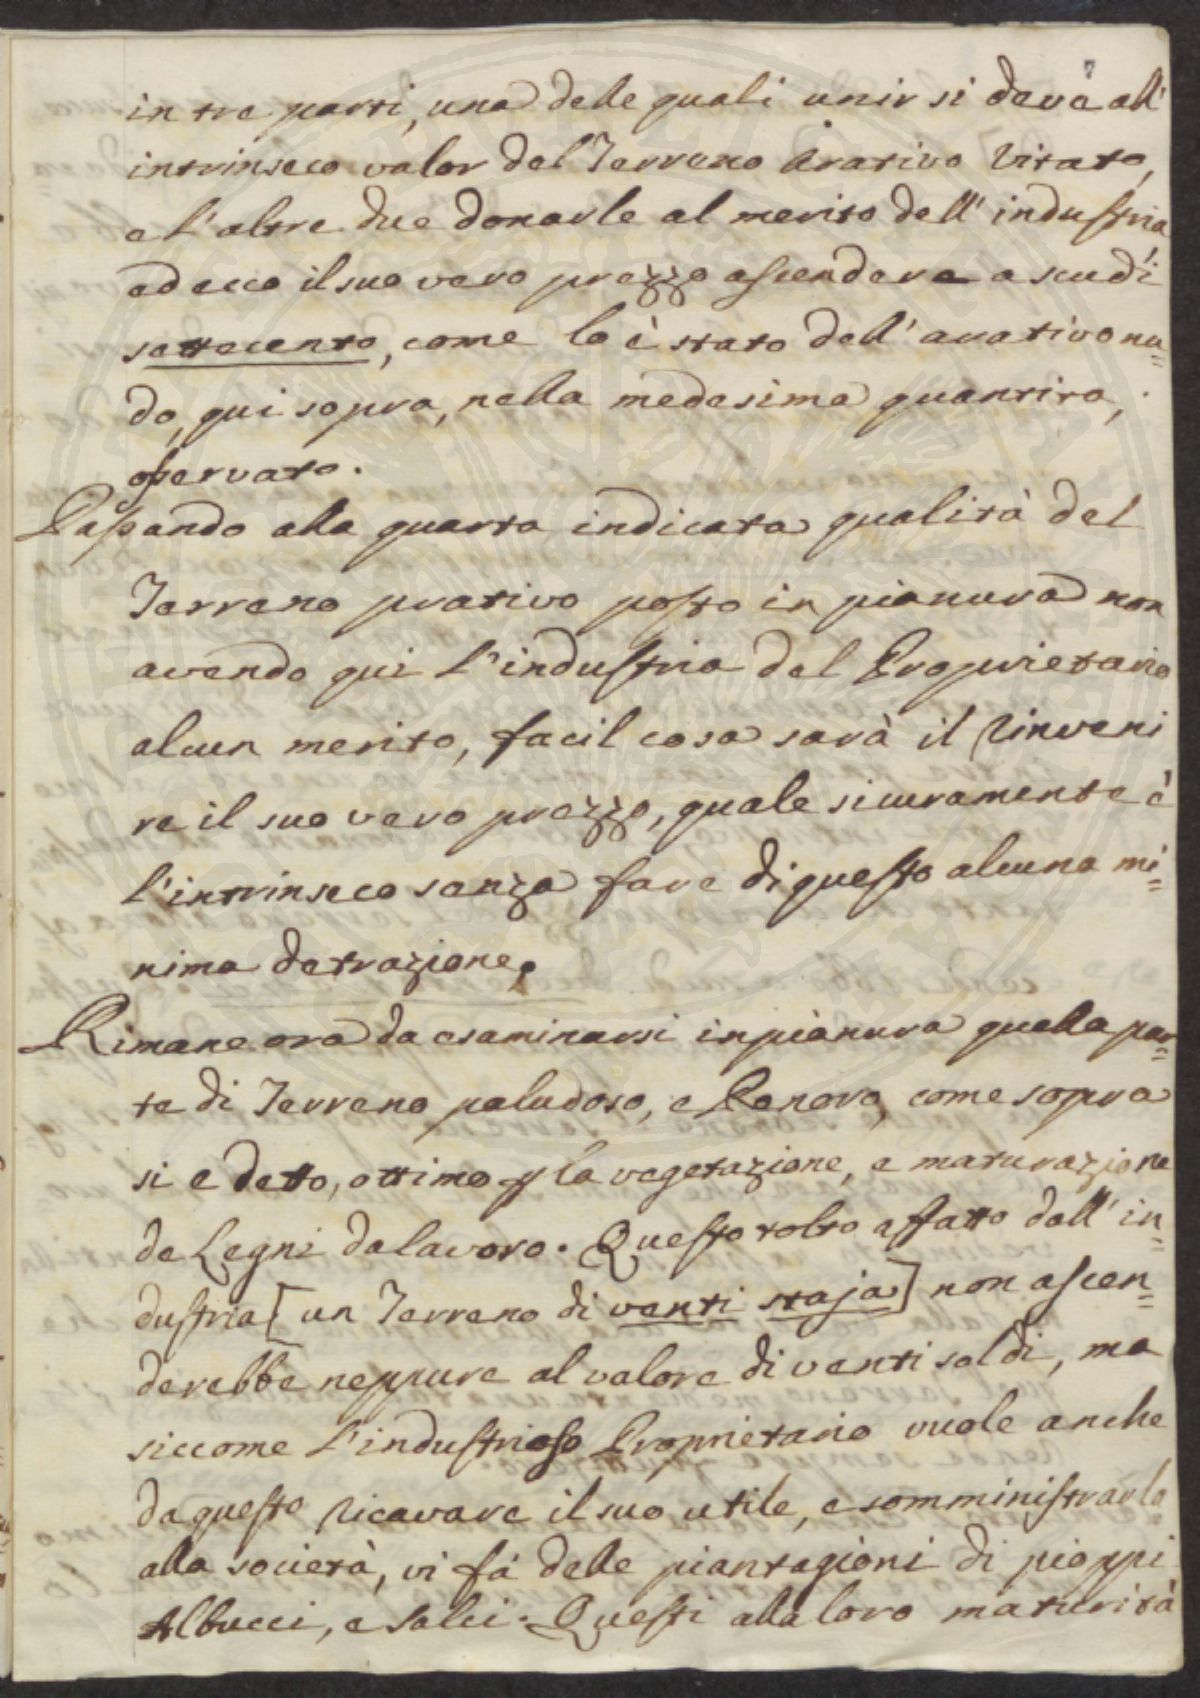 7
in tre parti, una delle quali unir si deve all'
intrinseco valor del Terreno Arativo Vitato,
e l'altre due donarle al merito dell' industria
ed ecco il suo vero prezzo ascendere a scudi
settecento, come lo è stato dell' arativo nu=
do, qui sopra, nella medesima quantità,
osservato.
Passando alla quarta indicata qualità del
Terreno prativo posto in pianura non
avendo qui l'industria del Proprietario
alcun merito, facil cosa sarà il rinveni
re il suo vero prezzo, quale sicuramente è
l'intrinseco senza fare di questo alcuna mi=
nima detrazione.
Rimane ora da esaminarsi in pianura quella par=
te di Terreno paludoso, e come sopra
si e detto, ottimo p la vegetazione, e maturazione
de Legni da lavoro. Questo tolto affatto dall' in=
dustria [un Terreno di venti staja] non ascen=
derebbe neppure al valore di venti soldi, ma
siccome l'industrioso Proprietario vuole anche
da questo ricavare il suo utile, e somministrarlo
alla società, vi fà delle piantagioni di pioppi
Albucci, e Salci. Questi alla loro maturità